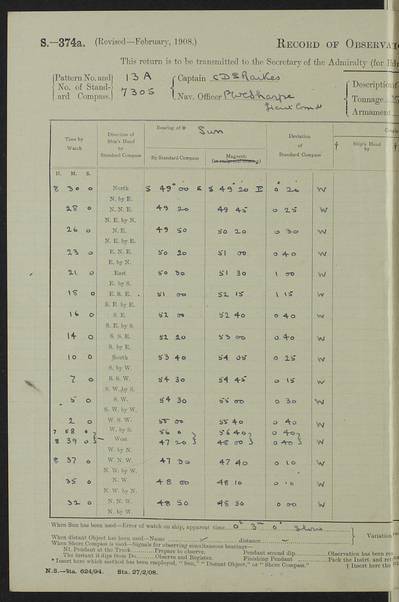 S.—374a. (Revised—February, 1908.) RECORD OF OBSERVAT
This return is to be transmitted to the Secretary of the Admiralty (for
Pattern No. and No. of Standard Compass. 13 A 7305
Captain C D S Raikes
Nav. Officer
Lieut Comdr
Description
Tonnage
Armament
Time by Watch
Direction of Ship's Head by Standard Compass
Bearing of Sun
By Standard Compass
Magnetic
Deviation of Standard Compass
Ship's Head by
H. M. S.
8 30 0 North S 49° 00 E S 49° 20 E 0° 20 W
N. by E.
28 0 N. N. E. 49 20 49 45 0 25 W
N. E. by N.
26 0 N. E. 49 50 50 20 0 30 W
N. E. by E.
23 0 E. N. E. 50 20 51 00 0 40 W
E. by N.
21 0 East 50 30 51 30 1 00 W
E. by S.
18 0 E. S. E. 51 00 52 15 1 15 W
S. E. by E.
16 0 S. E. 52 00 52 40 0 40 W
S. E. by S.
14 0 S. S. E. 52 20 53 00 0 40 W
S. by E.
10 0 South 53 40 54 05 0 25 W
S. by W.
7 0 S. S. W. 54 30 54 45 0 15 W
S. W. by S.
5 0 S. W. 54 30 55 00 0 30 W
S. W. by W.
2 0 W. S. W. 55 00 55 40 0 40 W
7 58 0 W. by S. 56 0 56 40 0 40
8 39 0 West 47 20 48 00 0 40 W
W. by N.
8 37 0 W. N. W. 47 30 47 40 0 10 W
N. W. by W.
35 0 N. W. 48 00 48 10 0 10 W
N. W. by N.
32 0 N. N. W. 48 50 48 50 0 00 W
N. by W.
When Sun has been used—Error of watch on ship, apparent time 0 3 0 Slow
When distant Object has been used—Name distance Variation
When Shore Compass is used—Signals for observing simultaneous bearings—
N1. Pendant at the Truck Prepare to observe. Pendant second dip Observation has been
The instant it dips from Do. Observe and Register. Finishing Pendant Pack the Instrt. and
* Insert here which method has been employed, "Sun," "Distant Object," or "Shore Compass." † Insert here the
N.S.—Sta. 624/94. Sta. 27/2/08.